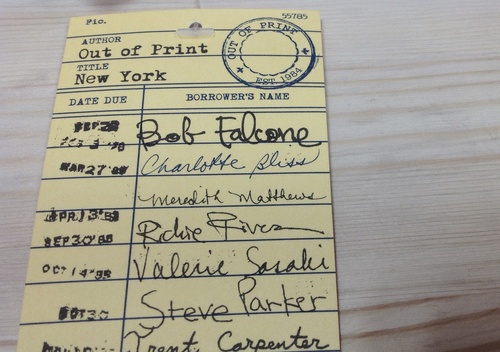 Fic. 55785
AUTHOR
Out of Print
TITLE
New York
OUT OF PRINT
EST. 1984
DATE DUE BORROWER'S NAME
Bob Falcone
MAR 27 '89 Charlotte Bliss
Meredith Matthews
Richie
SEP 30 '88
OCT 14 '88 Valerie Sasaki
Steve Parker
Trent Carpenter